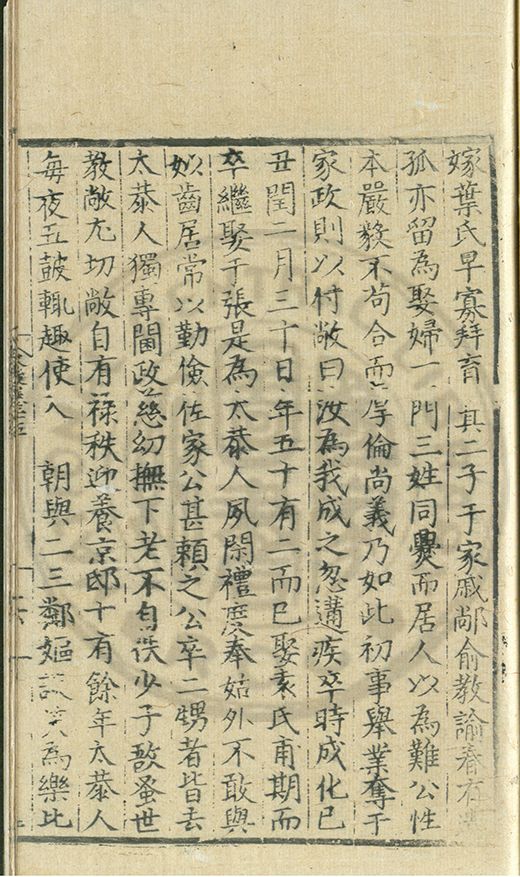 嫁葉氏早寡拜育其二子于家戚鄰俞教諭春有
孤亦留為娶婦一門三姓同爨而居人以為難公性
本嚴毅不苟合而厚倫尚義乃如此初事舉業奪于
家政則以付敞曰汝為我成之忽遘疾卒時成化己
丑閏二月三十日年五十有二而已娶袁氏甫期而
卒繼娶于張是為太恭人夙閑禮度奉姑外不敢與
姒齒居常以勤儉佐家公甚賴之公卒二甥者皆去
太恭人獨專閫政慈幼撫下老不自佚少子敔蚤世
教敞尤切敞自有祿秩迎養京邸十有餘年太恭人
每夜五鼓輒趣使入 朝與二三鄰嫗談笑為樂比